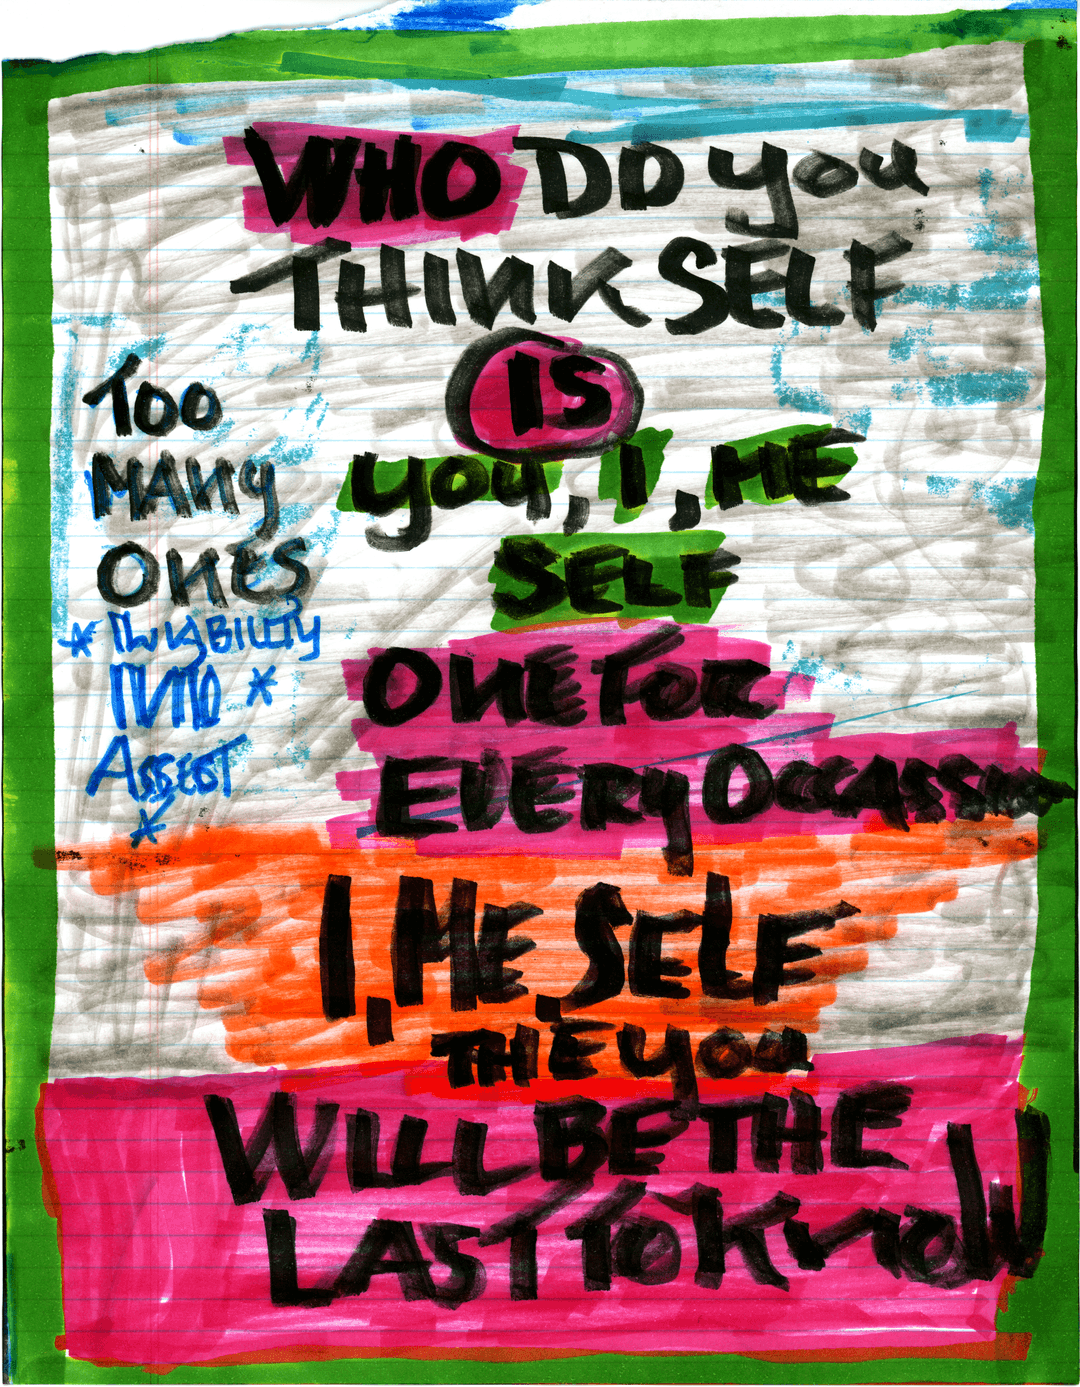 WHO DO you
THINK SELF
IS
you, I, ME
SELF
ONE FOR
EVERY OCCASSION
I, ME, SELF
THE YOU
WILL BE THE
LAST TO KNOW
TOO
MANY
ONES
*
INTO *
ASSEST
*